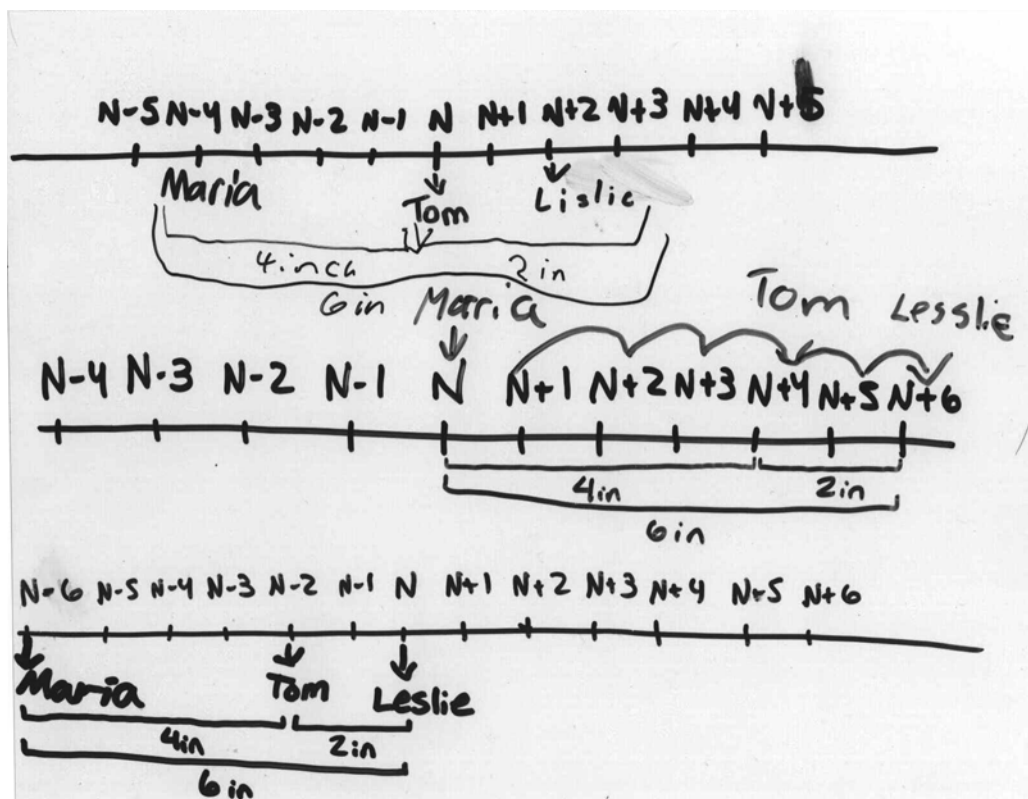 N-5 N-4 N-3 N-2 N-1 N N+1 N+2 N+3 N+4 N+5
Maria Tom Lislie
4 inch 2 in
6 in
Maria Tom Lesslie
N-4 N-3 N-2 N-1 N N+1 N+2 N+3 N+4 N+5 N+6
4in 2in
6in
N-6 N-5 N-4 N-3 N-2 N-1 N N+1 N+2 N+3 N+4 N+5 N+6
Maria Tom Leslie
4in 2in
6in